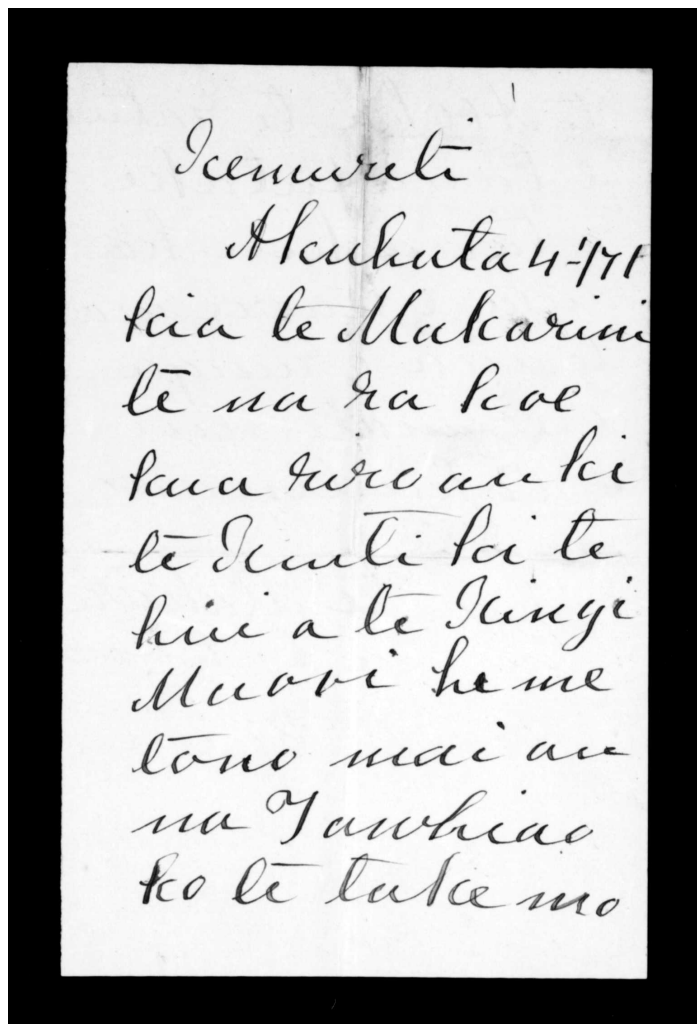 Kemureti
Akuhata 4-/71
kia te Makarini
tē na ra koe
kua riro au ki
tē Kuiti ki te
hui a te Kingi
Maori he me
tono mai au
na Tawhiao
ko tē take mo